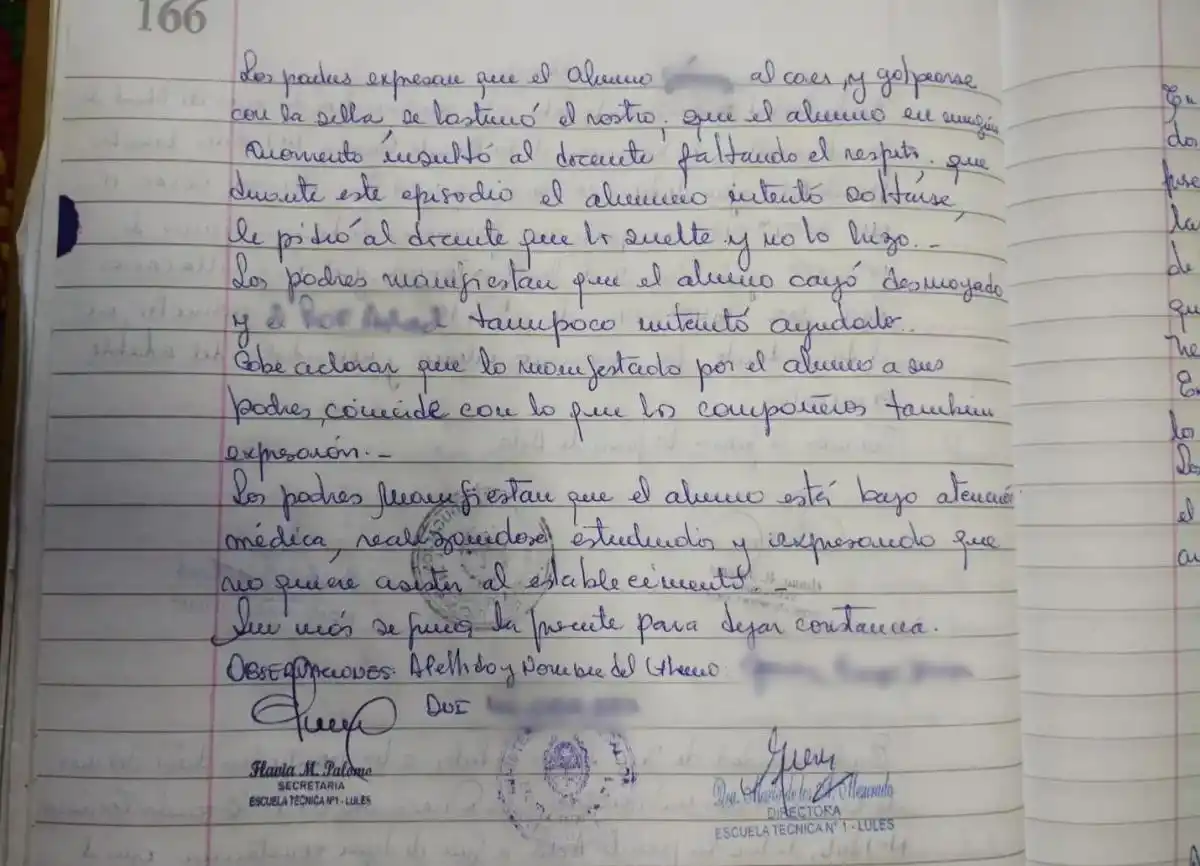 166
Los padres expresan que el alumno al caer, y golpearse
con la silla se lastimó el rostro, que el alumno en ningún
momento insultó al docente faltando el respeto, que
durante este episodio el alumno intentó soltarse,
le pidió al docente que lo suelte y no lo hizo.-
Los padres manifiestan que el alumno cayó desmayado
y el tampoco intentó ayudarlo.
Cabe aclarar que lo manifestado por el alumno a sus
padres, coincide con lo que los compañeros también
expresarón.-
Los padres manifiestan que el alumno está bajo atención
médica, realizandose estudios y expresando que
no quiere asistir al establecimiento.-
Sin más se firma la presente para dejar constancia.
OBSERVACIONES: Apellido y Nombre del Alumno
DNI
Flavia M. Palomo
SECRETARIA
ESCUELA TECNICA Nº1 - LULES
DIRECTORA
ESCUELA TECNICA Nº 1 - LULES